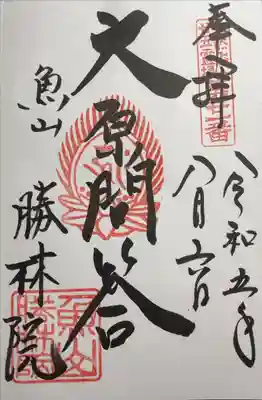 奉拝
令和五年
八月六日
大原問答
魚山
勝林院